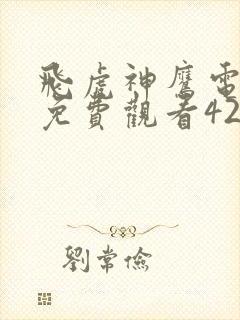 飛虎神鷹電
免費觀看42
劉常儉